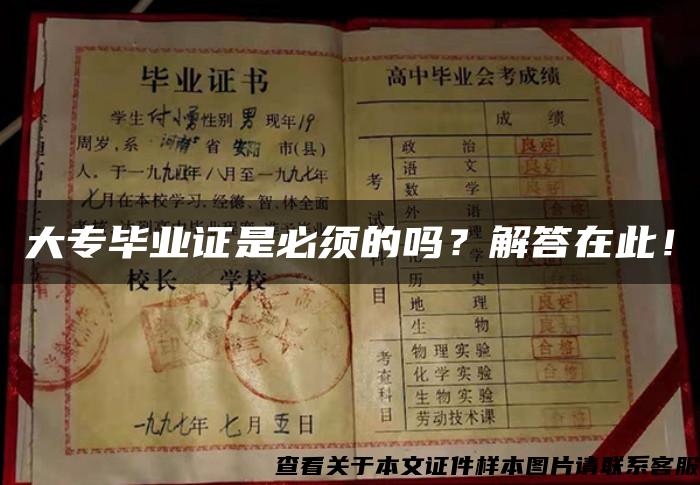 毕业证书
学生付小勇性别男现年19
周岁,系河南省安阳市(县)
人,于一九九四年八月至一九九七年
七月在本校学习,经德、智、体全面
大专毕业证是必须的吗?解答在此!
校长 学校
一九九七年七月五日
高中毕业会考成绩
成绩
考试科目
政治 良好
语文 良好
数学 良好
外语
历史
地理 良好
生物
考查科目
物理实验 合格
化学实验 合格
生物实验
劳动技术课 合格
查看关于本文证件样本图片请联系客服